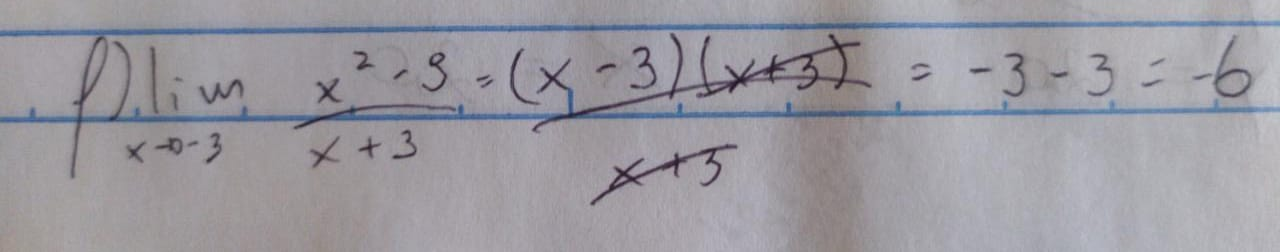 f) lim x→-3 x² - 9 / x + 3 = (x - 3)(x+3) / x+3 = -3 - 3 = -6